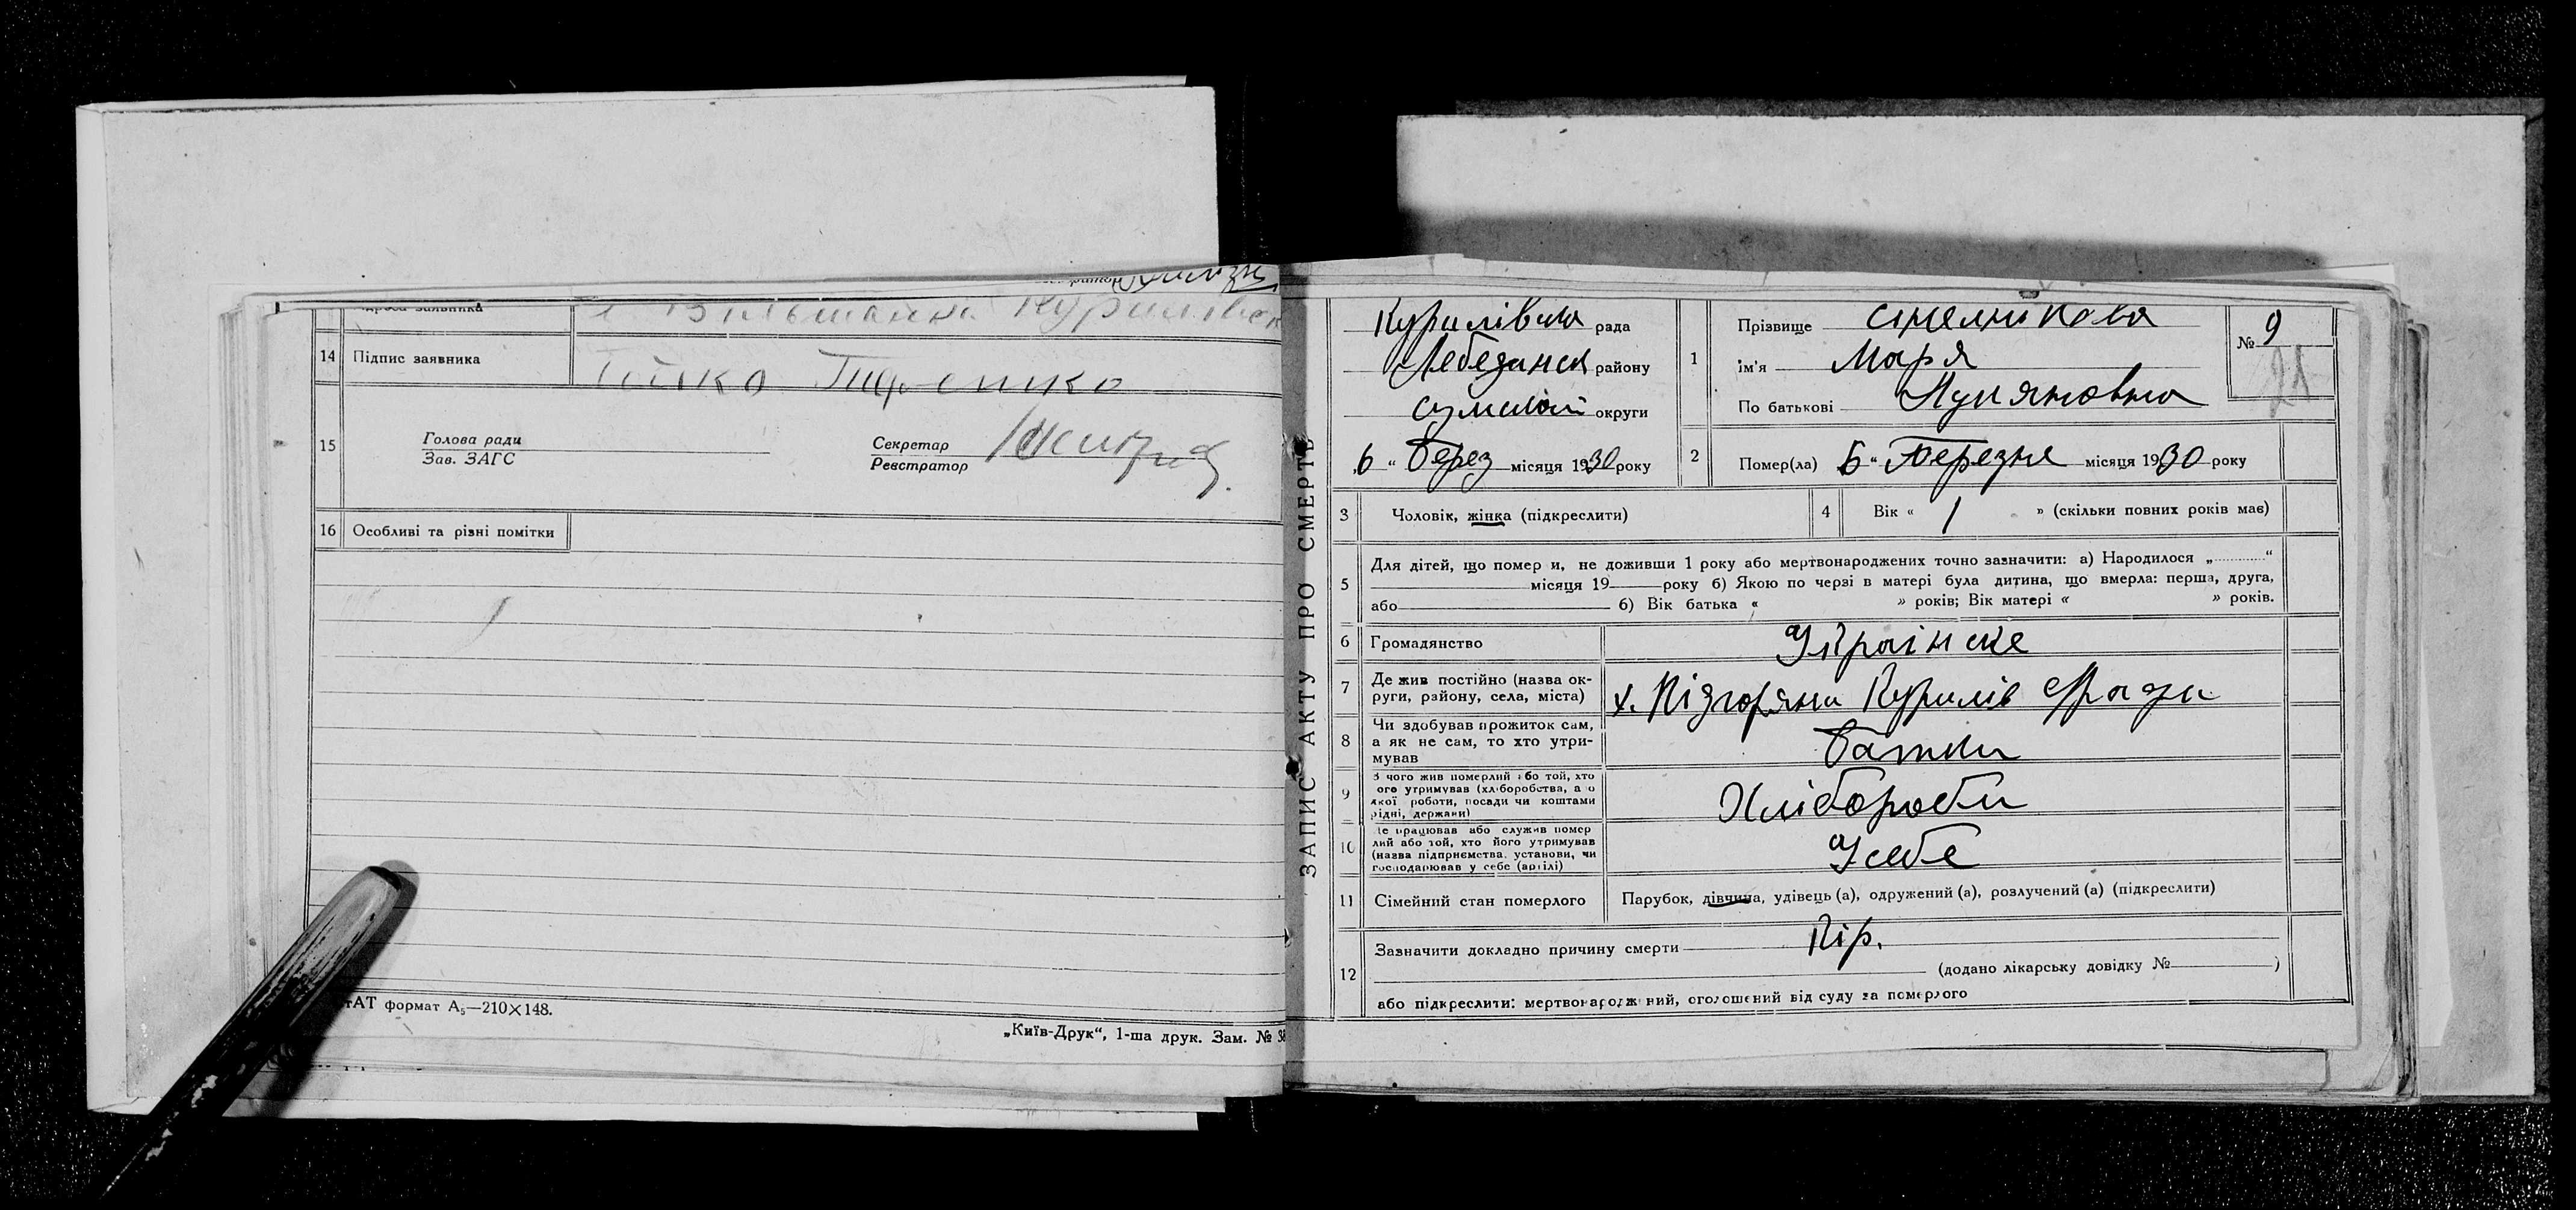 адреса заявника Вільшанка Курилівськ
14 Підпис заявника
15 Голова ради
Зав. ЗАГС
Секретар
Реєстратор
16 Особливі та різні помітки
формат А₅—210×148.
„Київ-Друк“, 1-ша друк. Зам. № 38
ЗАПИС АКТУ ПРО СМЕРТЬ
Курилівська рада
Лебединськ району
Сумської округи
„6“ Берез місяця 1930 року
1 Прізвище Сінелнікова
ім'я Марія
По батькові Лукяновна
№ 9
21
2 Помер(ла) 6 “ Березня місяця 1930 року
3 Чоловік, жінка (підкреслити)
4 Вік « 1 » (скільки повних років має)
5 Для дітей, що померли, не доживши 1 року або мертвонароджених точно зазначити: а) Народилося „ “
місяця 19 року б) Якою по черзі в матері була дитина, що вмерла: перша, друга,
або б) Вік батька « » років; Вік матері « » років.
6 Громадянство Українске
7 Де жив постійно (назва ок-
руги, району, села, міста) х. Підгоряни Курилів Срада
8 Чи здобував прожиток сам,
а як не сам, то хто утри-
мував Батки
9 З чого жив померлий або той, хто
ого утримував (хліборобства, а о
якої роботи, посади чи коштами
рідні, держави) Хлібороби
10 Де працював або служив помер
лий або той, хто його утримував
(назва підприємства, установи, чи
господарював у себе (артілі) У себе
11 Сімейний стан померлого Парубок, дівчина, удівець (а), одружений (а), розлучений (а) (підкреслити)
12 Зазначити докладно причину смерти Кір.
(додано лікарську довідку № )
або підкреслити: мертвонароджений, оголошений від суду за померлого